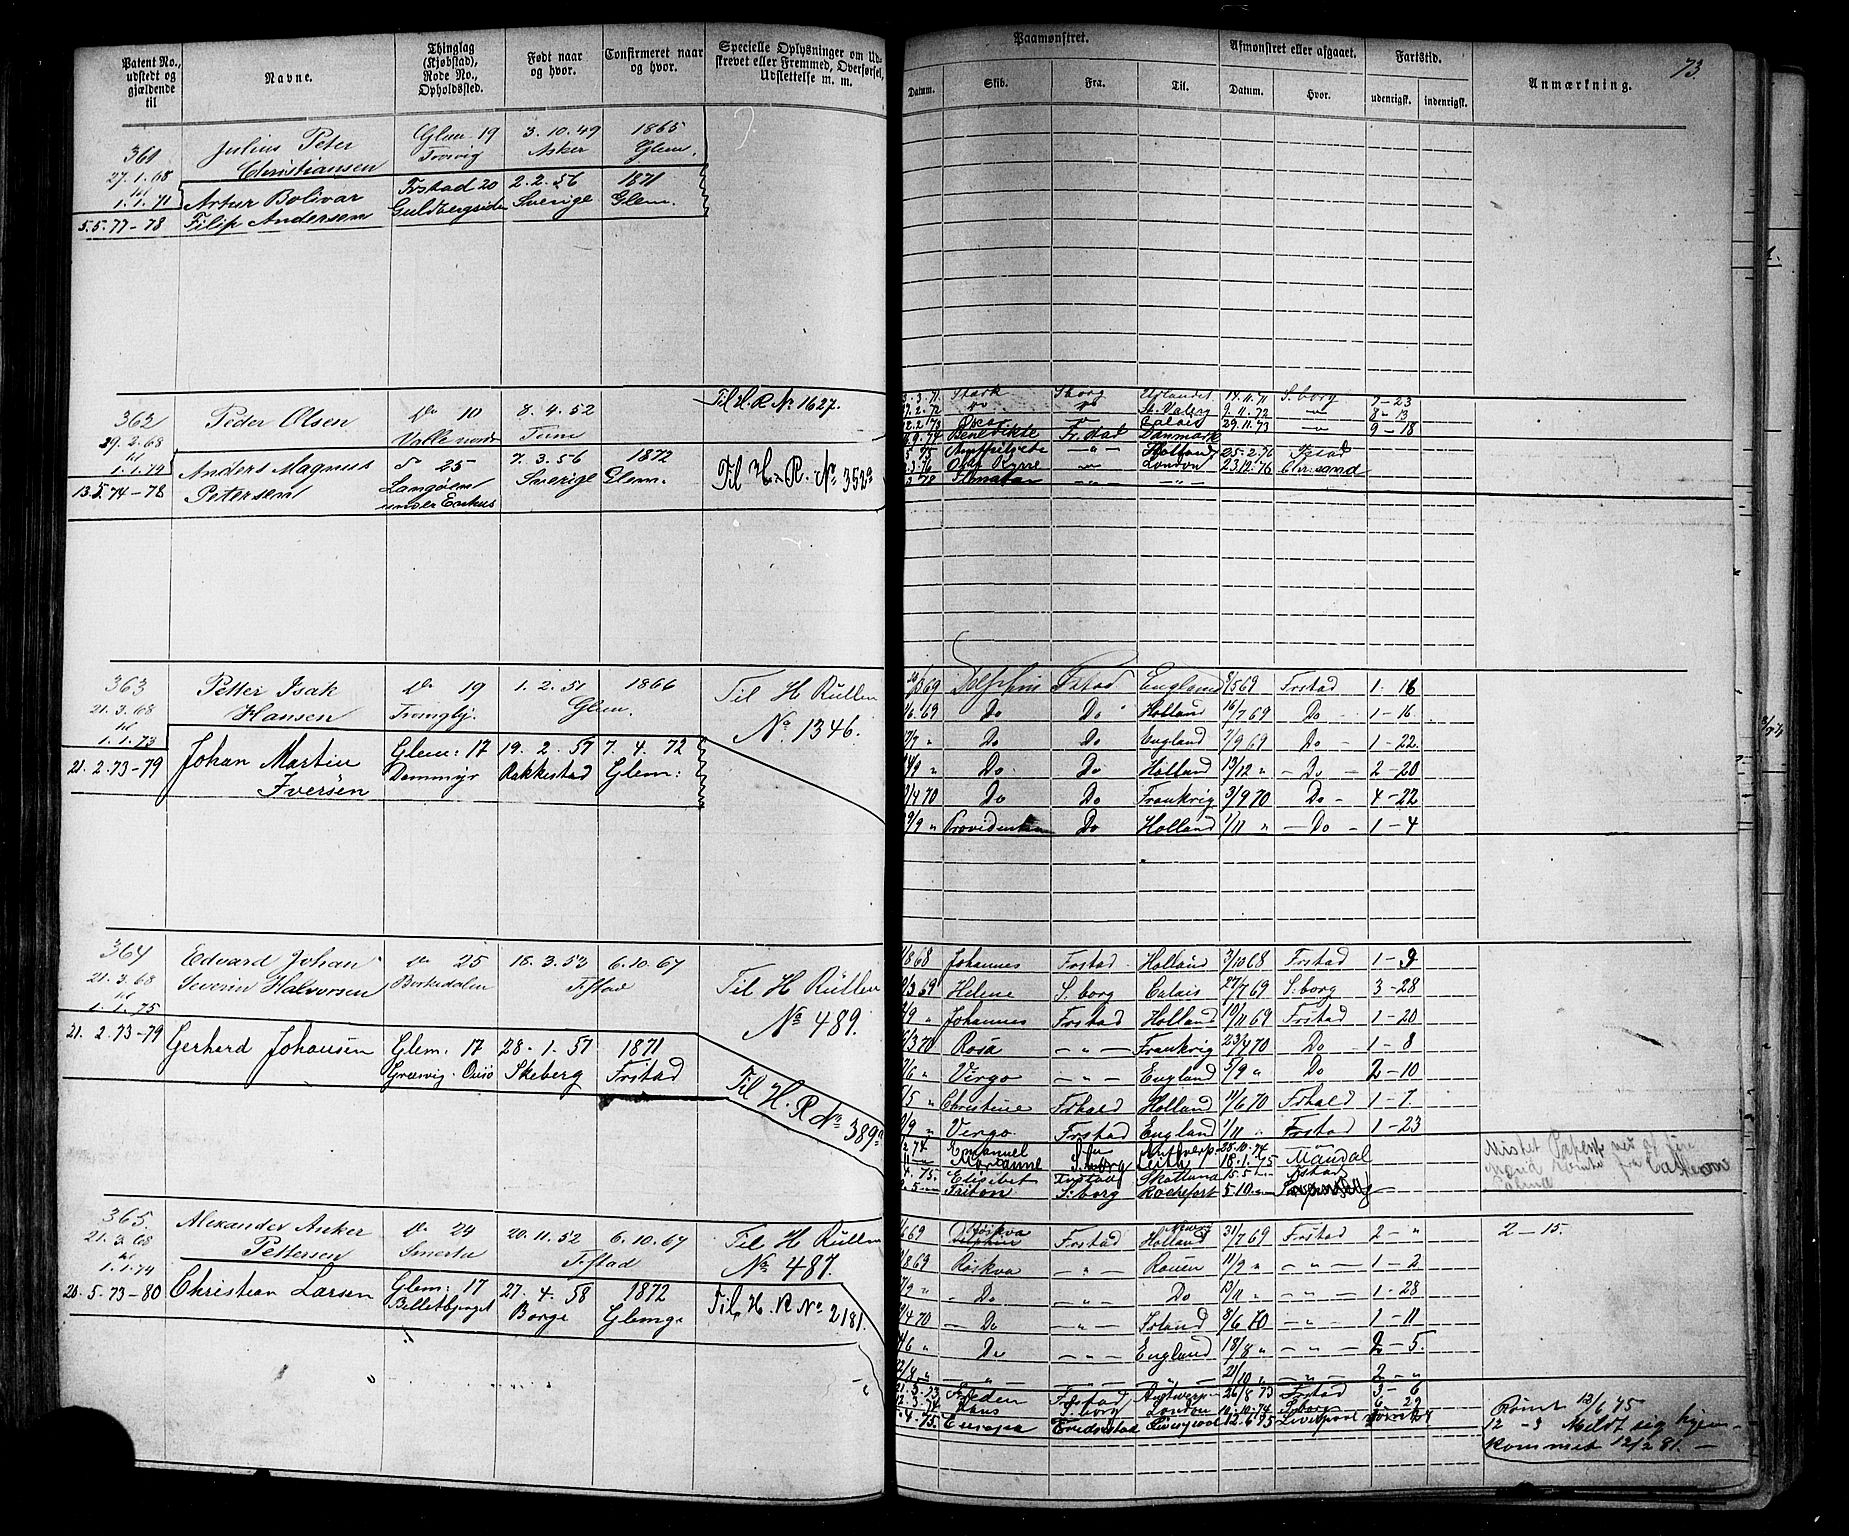 Patent No., udstedt og gjældende til
Navne.
Thinglag (Kjøbstad), Rode No., Opholdssted.
Født naar og hvor.
Confirmeret naar og hvor.
Specielle Oplysninger om Udskrevet eller Fremmed, Overførsel, Udslettelse m. m.
Paamønstret.
Datum. Skib. Fra. Til.
Afmønstret eller afgaaet.
Datum. Hvor.
Fartstid.
udenrigsk. indenrigsk.
Anmærkning.
73
361 Julius Peter Glem 19 3.10.49 1865
27.1.68 Christiansen Trosvig Asker Glem.
til
1.1.71 Artur Bolivar Frstad 20 2.2.56 1871
5.5.77-78 Filip Andersen Guldbergsiden Sverige Glem.
362 Peder Olsen Do 10 8.4.52 Til H.R No 1627.
29.2.68 Valle Tune
til
1.1.74 Anders Magnus Do 25 7.3.56 1872 Til H.R. No 3523
13.5.74-78 Petersen Langøen Sverige Glem.
under
Stark Sborg Uglandet 14.11.71 S.borg 7-23
Do Do St. Valery 9.11.72 " 8-13
Calais 29.11.73 " 9-18
Benedikte Fr.stad Danmark
" Holland 25.2.76 Fstad
Olaf Kyrre " London 23.12.76 Chr.sand
" "
363 Petter Isak Do 19 1.2.51 1866 Til H Rullen
21.3.68 Hansen Glem. No 1346.
til
1.1.73 Johan Martin Glem: 17 19.2.57 7.4.72
21.2.73-79 Iversen Dammyr Rakkestad Glem:
69 Delphin Fstad England 8/5 69 Frstad 1-16
6.69 Do Do Holland 16/7 69 Do 1-16
" Do Do England 7/9 69 Do 1-22
" Do Do Holland 13/12 " Do 2-20
4 70 Do Do Frankrig 3/9 70 Do 4-22
9 " Do Holland 1/11 " Do 1-4
364 Edvard Johan Do 25 18.3.52 6.10.67 Til H Rullen
21.3.68 Severin Halvorsen Borkedalen F.stad No 489.
til
1.1.75
21.2.73-79 Gerhard Johansen Glem: 17 28.1.57 1871 Til H.R No 389
Græsvig Skeberg Frstad
8 68 Johannes Frstad Holland 3/10 68 Frstad 1-9
3 69 Helene S.borg Calais 27/7 69 S.borg 3-28
9 " Johannes Frstad Holland 10/11 69 Frstad 1-20
3 70 Rosa " Frankrig 23/4 70 Do 1-8
6 " Virgo " England 3/9 " Do 2-10
5 " Christine Fdhald Holland 11/6 70 Fdhald 1-7.
9 " Virgo Frstad England 1/11 " Frstad 1-23
2.74 Emanuel Do Antverp. 28.10.74
Marianne S.borg Leith 18.1.75 Mandal
4.75. Elisabet Frstad Skotland
5.- Triton S.borg Rochefort 5.10.-
Mistet
365. Alexander Anker Do 24 20.11.52 6.10.67 Til H Rullen
21.3.68 Pettersen Smertu F.stad No 487.
til
1.1.74
28.5.73-80 Christian Larsen Glem: 17 27.4.58 1872 Til H.R No 2181.
Borge Glemg.
6 69 Røskva Delphin Frstad Holland 31/7 69 Frstad 2 - " 2-15.
8 69 Røskva " Rouen 11/9 " " 1-2
9 " Do " Do 13/11 " " 1-28
4 70 Do " Island 8/6 70 " 1-11
6 " Do " England 18/8 " " 2-5.
8 " " " " 21/10 " " 2 - "
21.3.73 Freden Frstad Antwerp 26/8 73 Frstad 3-6
Hans S.borg London 10.10.74 S.borg 6 29
4.75. Europa Fredrikstad Liverpool 12.6.75 Liverpool Rømt
Rømt 12/6 75
12-3 Meldt sig hjem-
kommet 12/2 81. -